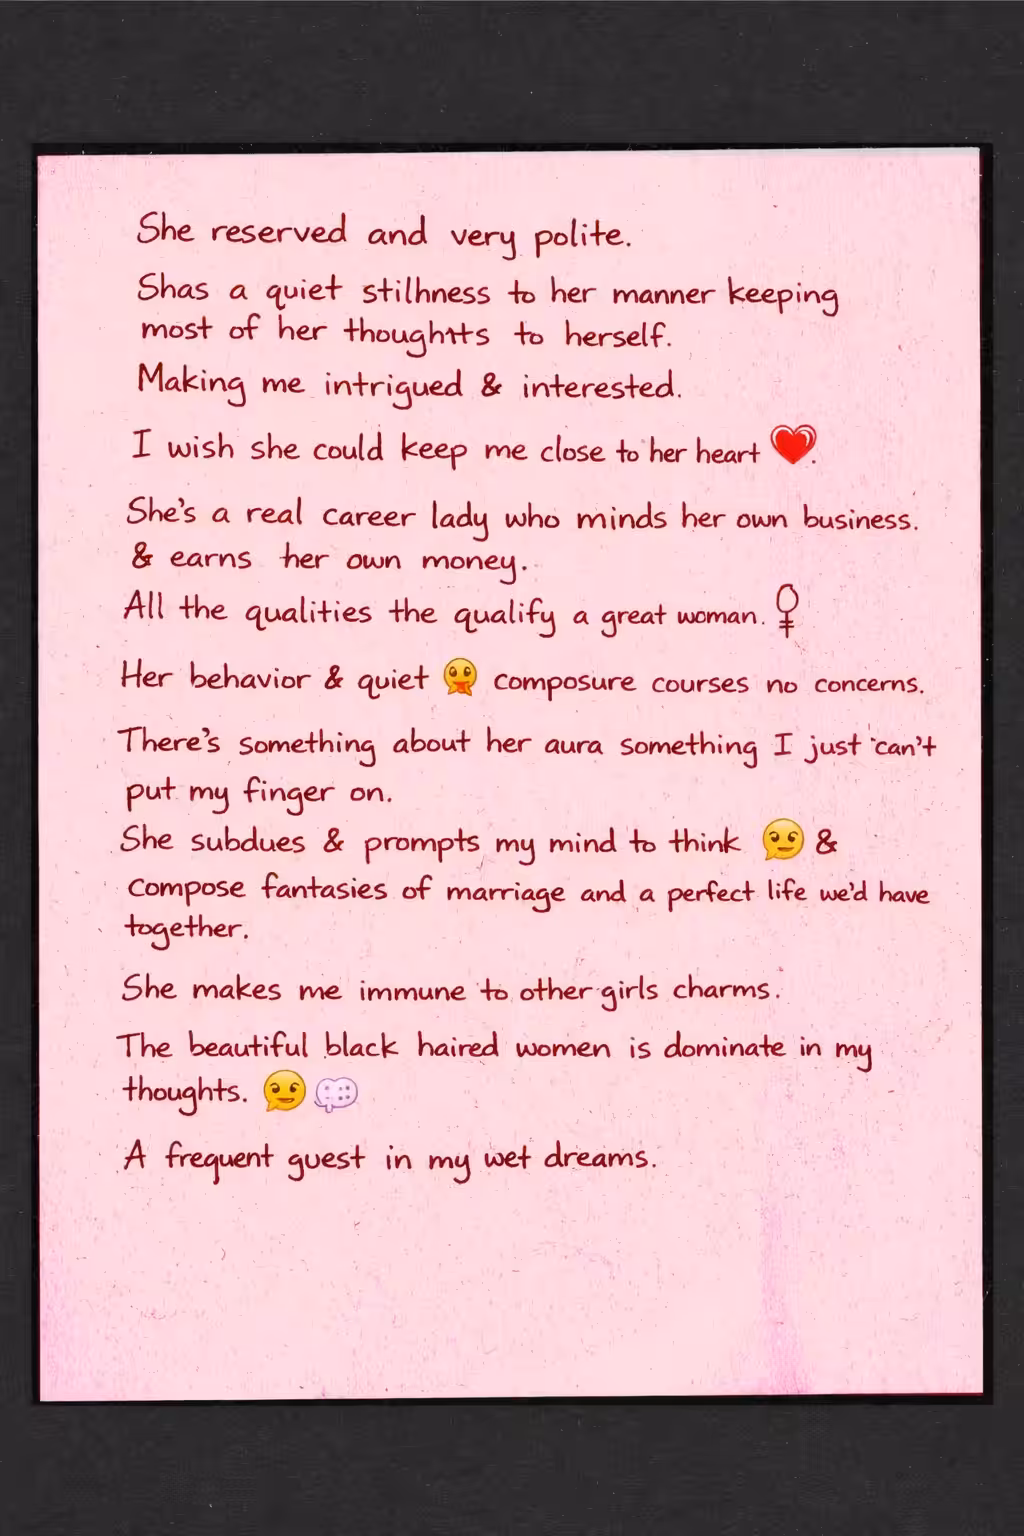 She reserved and very polite.
Shas a quiet stilhness to her manner keeping
most of her thoughtts to herself.
Making me intrigued & interested.
I wish she could keep me close to her heart ❤️.
She's a real career lady who minds her own business.
& earns her own money.
All the qualities the qualify a great woman. ♀
Her behavior & quiet composure courses no concerns.
There's something about her aura something I just can't
put my finger on.
She subdues & prompts my mind to think &
compose fantasies of marriage and a perfect life we'd have
together.
She makes me immune to other girls charms.
The beautiful black haired women is dominate in my
thoughts.
A frequent guest in my wet dreams.